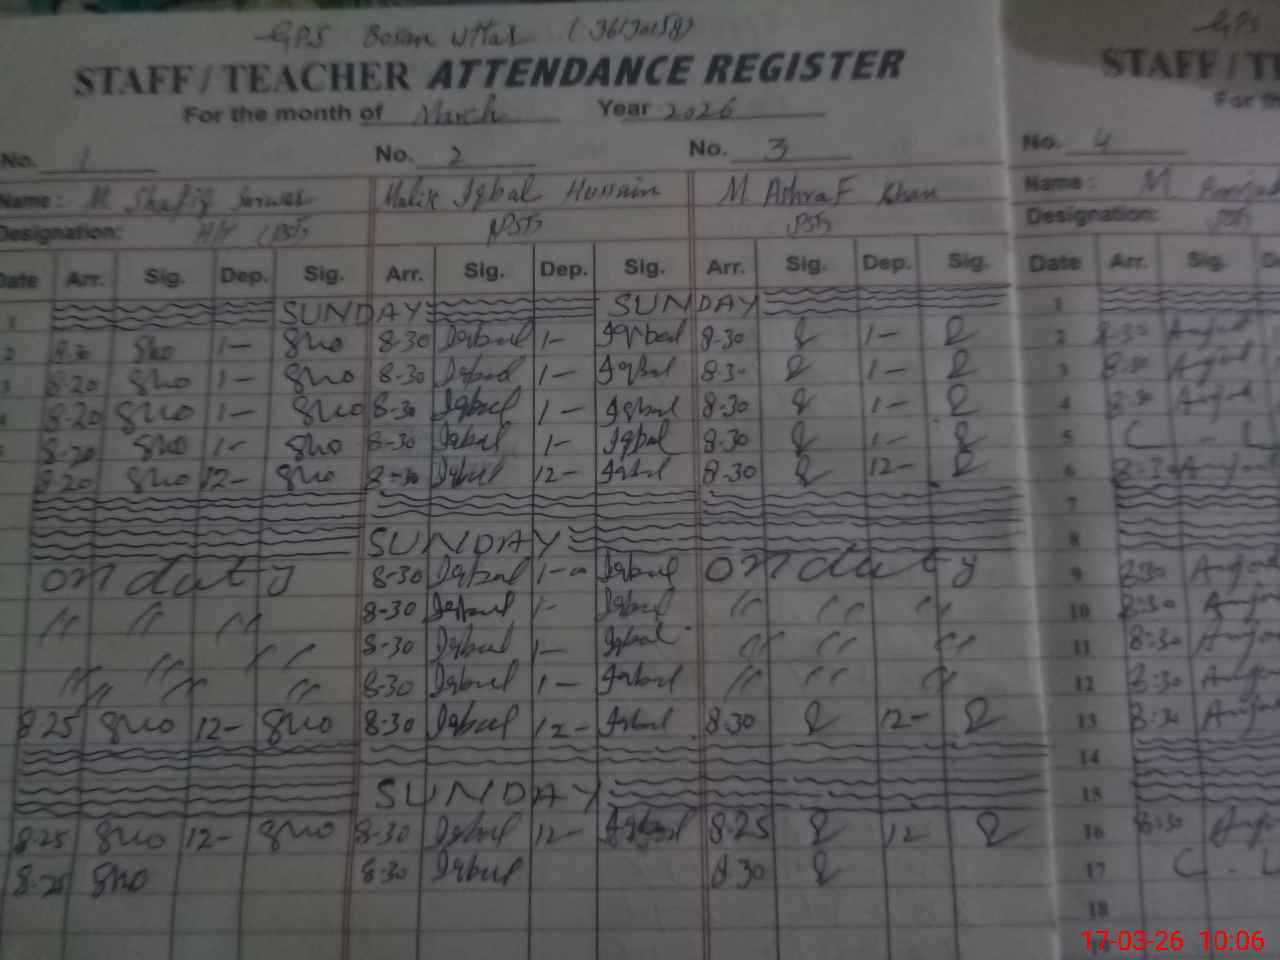 GPS Bosan Uttar (36130158)
STAFF / TEACHER ATTENDANCE REGISTER
For the month of March Year 2026
No. 1 No. 2 No. 3
Name: M Shafiq Sarwar Malik Iqbal Hussain M Ashraf Khan
Designation: PST
Date Arr. Sig. Dep. Sig. Arr. Sig. Dep. Sig. Arr. Sig. Dep. Sig.
1 SUNDAY SUNDAY
2 8-30 1- 8-30 Iqbal 1- Iqbal 8-30 1-
3 8-20 1- 8-30 Iqbal 1- Iqbal 8-30 1-
4 8-20 1- 8-30 Iqbal 1- Iqbal 8-30 1-
8-20 1- 8-30 Iqbal 1- Iqbal 8-30 1-
8-20 12- 8-30 Iqbal 12- Iqbal 8-30 12-
SUNDAY
on duty 8-30 Iqbal 1- Iqbal on duty
" " " 8-30 Iqbal 1- Iqbal " " "
" " 8-30 Iqbal 1- Iqbal " " "
" " " " 8-30 Iqbal 1- Iqbal " " "
8-25 12- 8-30 Iqbal 12- Iqbal 8-30 12-
SUNDAY
8-25 12- 8-30 Iqbal 12- Iqbal 8-25 12
8-25 8-30 Iqbal 8-30
GPS
STAFF / TE
For the
No. 4
Name: M
Designation: PST
Date Arr. Sig. D
1
2 8-30 Amjad
3 8-30 Amjad
4 8-30 Amjad
5 C - L
6 8-30 Amjad
7
8
9 8-30 Amjad
10 8-30 Amja
11 8-30 Amja
12 8-30 Amja
13 8-30 Amja
14
15
16 8-30 Amja
17 C - L
18
17-03-26 10:06